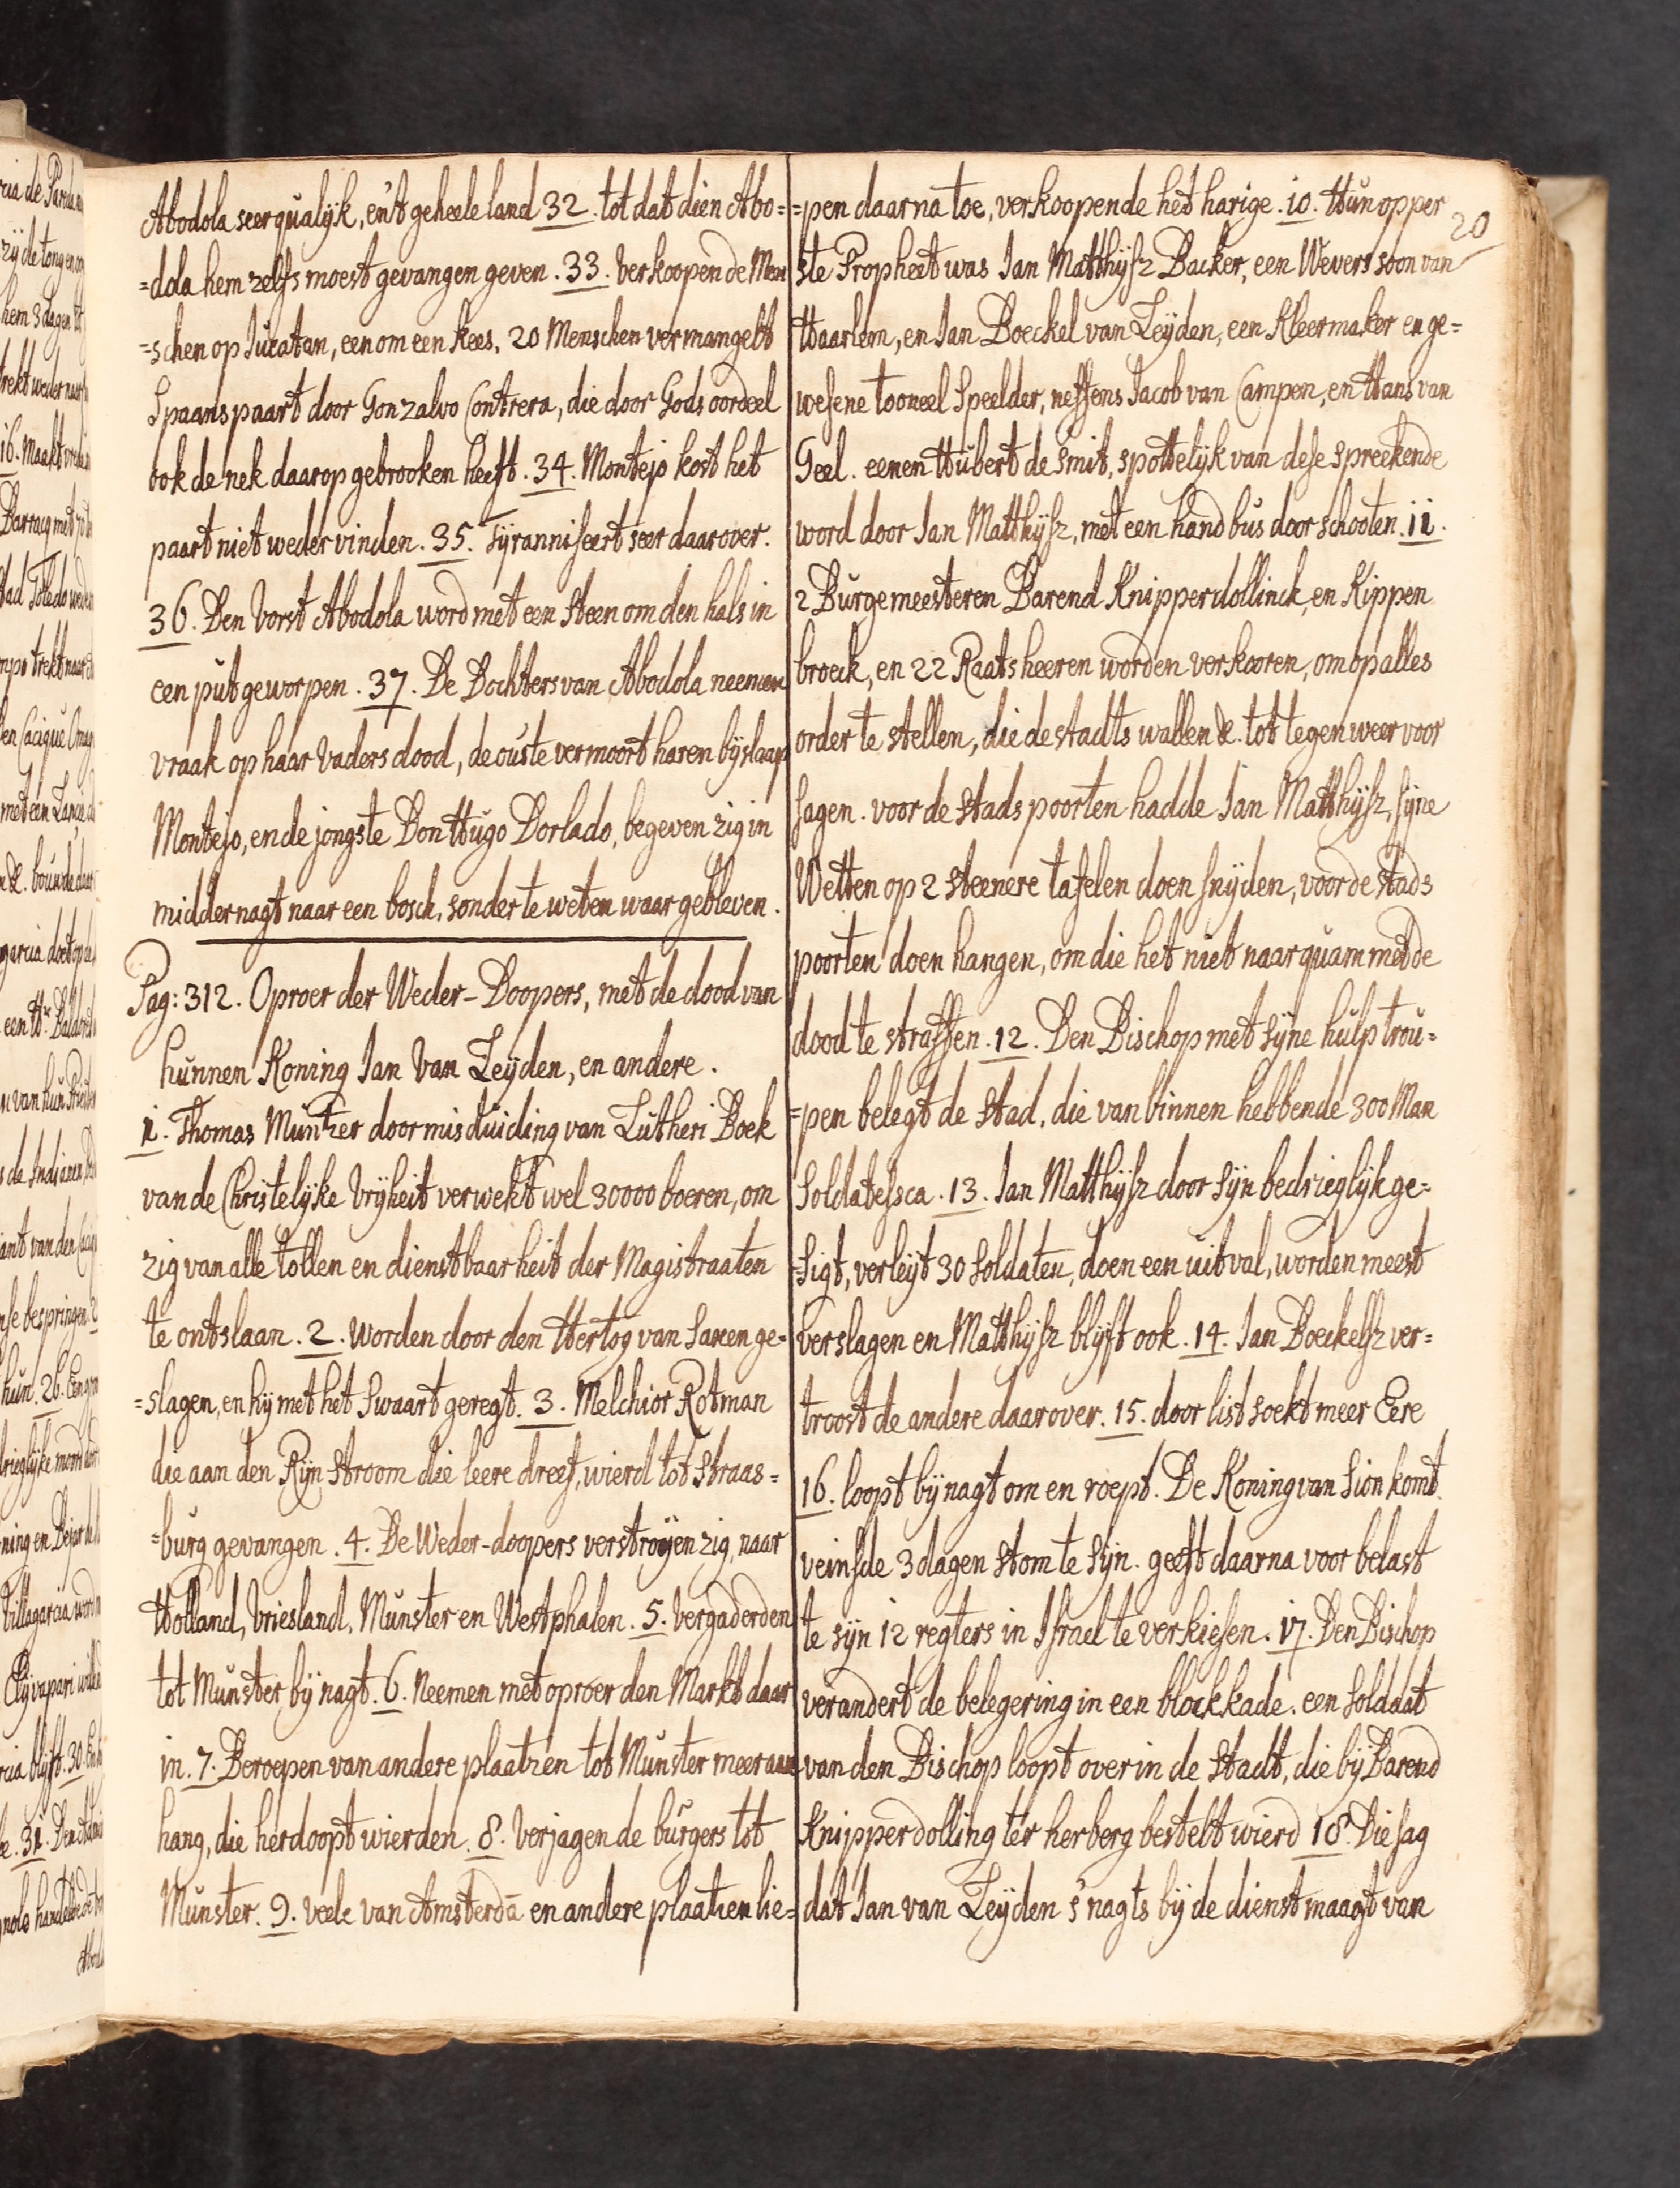 Abodola seer qualijk, en't geheele land 32. tot dat dien Abo=
=dola hem zelfs moest gevangen geven. 33. verkoopen de Men
=schen op Iucatan, een om een kees, 20 Menschen vermangelt
Spaans paart door Gonzalvo Contrera, die door Gods oordeel
ook de nek daarop gebrooken heeft. 34. Montejo kost het
paart niet weder vinden. 35. Tÿranniseert seer daarover.
36. Den Vorst Abodola word met een steen om den hals in
een put geworpen. 37. De Dochters van Abodola neemen
vraak op haar Vaders dood, de ouste vermoort haren bÿslaap
Montejo, en de jongste Don Hugo Dorlado, begeven zig in
middernagt naar een bosch, sonder te weten waar gebleven.
Pag: 312. Oproer der Weder-Doopers, met de dood van
hunnen Koning Ian Van Leÿden, en andere.
1. Thomas Muntzer door misduiding van Lutheri Boek
van de Christelÿke Vrÿheit verwekt wel 30000 boeren, om
zig van alle tollen en dienstbaarheit der Magistraaten
te ontslaan. 2. worden door den Hertog van Saxen ge=
=slagen, en hij met het Swaart geregt. 3. Melchior Rotman
die aan den Rijn stroom die leere dreef, wierd tot Straas=
=burg gevangen. 4. De Weder-doopers verstroÿen zig, naar
Holland, Vriesland, Munster en Westphalen. 5. vergaderden
tot Munster bÿ nagt. 6. Neemen met oproer den Markt daar
in. 7. Beroepen van andere plaatzen tot Munster meer aan
hang, die herdoopt wierden. 8. Verjagen de burgers tot
Munster. 9. veele van Amsterdā en andere plaatzen lie=
20
=pen daarna toe, verkoopende het harige. 10. Hun opper
ste Propheet was Ian Matthÿsz Backer, een Wevers soon van
Haarlem, en Ian Boeckel van Leÿden, een Kleermaker en ge=
wesene tooneel Speelder, neffens Iacob van Campen, en Hans van
Geel. eenen Hubert de smit, spottelijk van dese spreekende
word door Ian Matthÿsz, met een hand bus doorschooten. 11.
2 Burgemeesteren Barend Knipperdollinck, en Kippen
broeck, en 22 Raatsheeren worden verkooren, om op alles
order te stellen, die de stadts wallen &. tot tegenweer voor
sagen. voor de stads poorten hadde Ian Matthÿsz, sÿne
Wetten op 2 steenere tafelen doen snÿden, voor de stads
poorten doen hangen, om die het niet naarquam met de
dood te straffen. 12. Den Bischop met sÿne hulp trou=
=pen belegt de stad, die van binnen hebbende 300 Man
Soldatessca. 13. Ian Matthÿsz door sÿn bedrieglÿk ge=
=sigt, verleÿt 30 soldaten, doen een uitval, worden meest
verslagen en Matthÿsz blÿft ook. 14. Ian Boeckelsz ver=
troost de andere daarover. 15. door list soekt meer Eere
16. loopt bÿ nagt om en roept. De Koning van Sion komt
veinsde 3 dagen stom te sÿn. geeft daarna voor belast
te sÿn 12 regters in Israel te verkiesen. 17. Den Bischop
verandert de belegering in een blockkade. een soldaat
van den Bischop loopt over in de Stadt, die bÿ Barend
Knipperdolling ter herberg bestelt wierd 18. Die sag
dat Ian van Leÿden s'nagts bÿ de dienstmaagt van